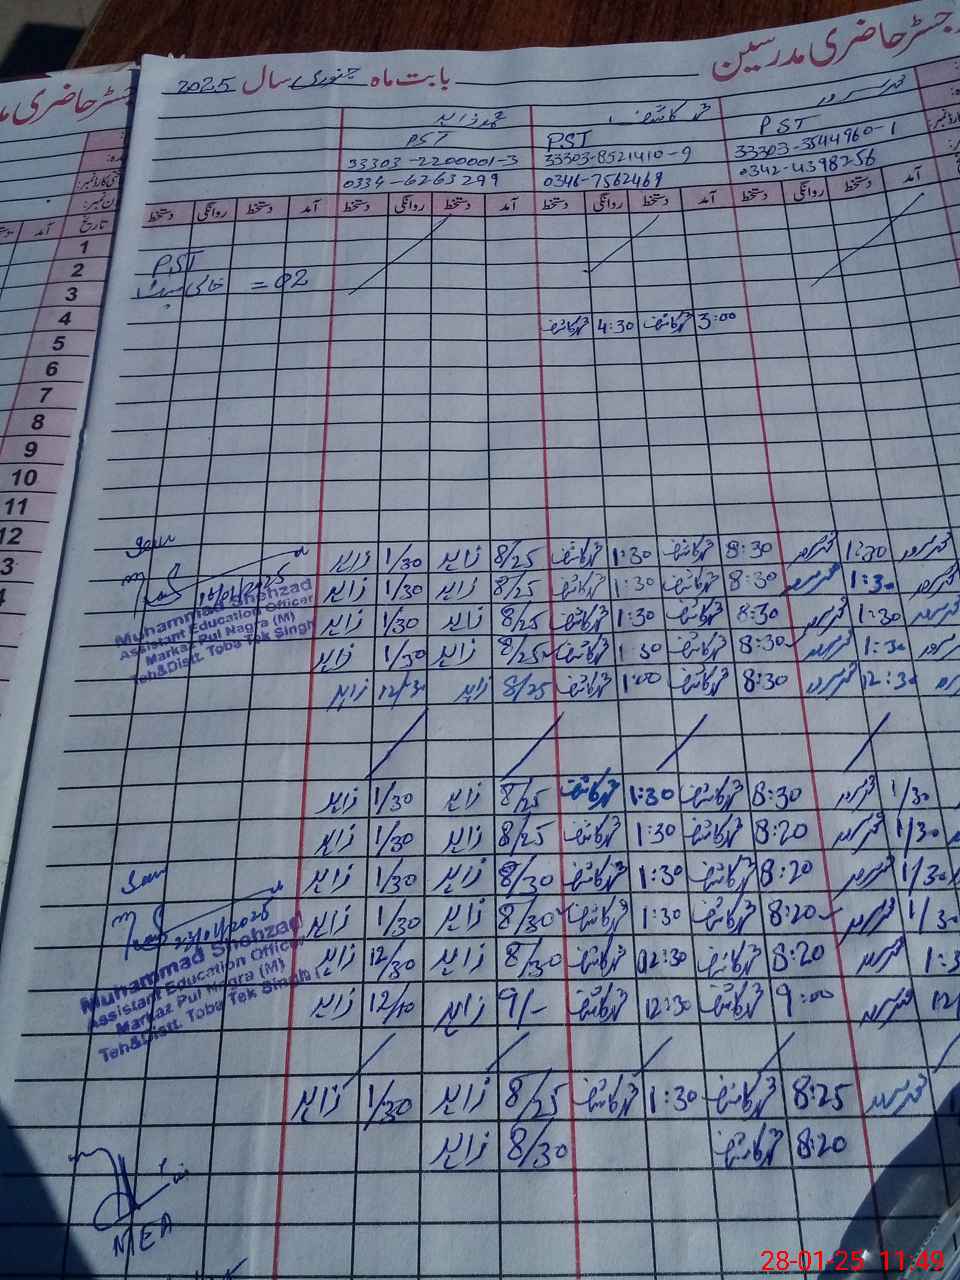 رجسٹر حاضری مدرسین
بابت ماہ جنوری سال 2025
محمد سرور محمد کاشف محمد زاہد
PST PST PST
33303-3544960-1 33303-8521410-9 33303-2200001-3
0342-4398256 0346-7562469 0334-6263299
آمد دستخط روانگی دستخط آمد دستخط روانگی دستخط آمد دستخط روانگی دستخط آمد دستخط روانگی دستخط
تاریخ آمد
1
2
3
4
5
6
7
8
9
10
11
12
PST
خالی سیٹ = 02
3:00 محمد کاشف 4:30 محمد کاشف
1:30 محمد سرور 8:30 محمد کاشف 1:30 محمد کاشف 8/25 زاہد 1/30 زاہد
1:30 محمد سرور 8:30 محمد کاشف 1:30 محمد کاشف 8/25 زاہد 1/30 زاہد
1:30 محمد سرور 8:30 محمد کاشف 1:30 محمد کاشف 8/25 زاہد 1/30 زاہد
1:30 محمد سرور 8:30 محمد کاشف 1:30 محمد کاشف 8/25 زاہد 1/30 زاہد
12:30 محمد سرور 8:30 محمد کاشف 1:00 محمد کاشف 8/25 زاہد 12/30 زاہد
Seen
Muhammad Shehzad
Assistant Education Officer
Markaz Pul Nagra (M)
Teh&Distt. Toba Tek Singh
1/30 محمد سرور 8:30 محمد کاشف 1:30 محمد کاشف 8/25 زاہد 1/30 زاہد
1/30 محمد سرور 8:20 محمد کاشف 1:30 محمد کاشف 8/25 زاہد 1/30 زاہد
1/30 محمد سرور 8:20 محمد کاشف 1:30 محمد کاشف 8/30 زاہد 1/30 زاہد
1/30 محمد سرور 8:20 محمد کاشف 1:30 محمد کاشف 8/30 زاہد 1/30 زاہد
محمد سرور 8:20 محمد کاشف 12:30 محمد کاشف 8/30 زاہد 12/30 زاہد
محمد سرور 9:00 محمد کاشف 12:30 محمد کاشف 9/- زاہد 12/10 زاہد
Seen
23/01/2025
Muhammad Shehzad
Assistant Education Officer
Markaz Pul Nagra (M)
Teh&Distt. Toba Tek Singh
محمد سرور 8:25 محمد کاشف 1:30 محمد کاشف 8/25 زاہد 1/30 زاہد
8:20 محمد کاشف 8/30 زاہد
MEA
28-01-25 11:49